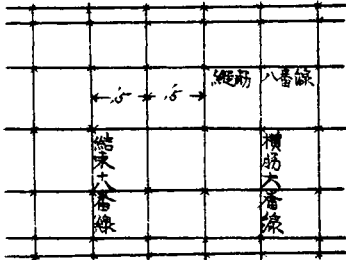 縦筋 八番線
.5 .5
結束十八番線
横筋六番線